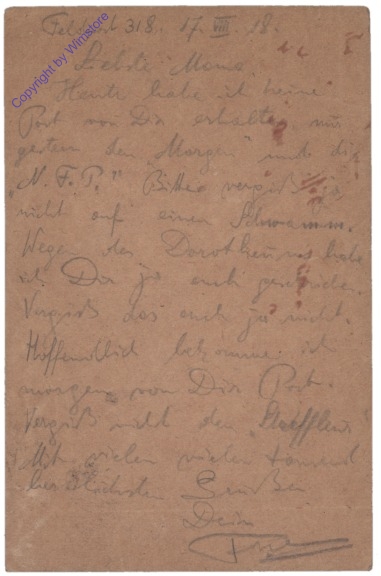 Feldpost 318. 17. VIII. 18.
Copyright by Winstore
Liebste Mama,
Heute habe ich keine
Post von Dir erhalten, nur
gestern den „Morgen" und die
„N. F. P." Bitte vergiß ja
nicht auf einen Schwamm.
Wegen des habe
ich Dir ja auch geschrieben.
Vergiß das auch ja nicht.
Hoffentlich bekomme ich
morgen von Dir Post.
Vergiß nicht den
Mit vielen vielen tausend
herzlichsten Grüßen
Dein